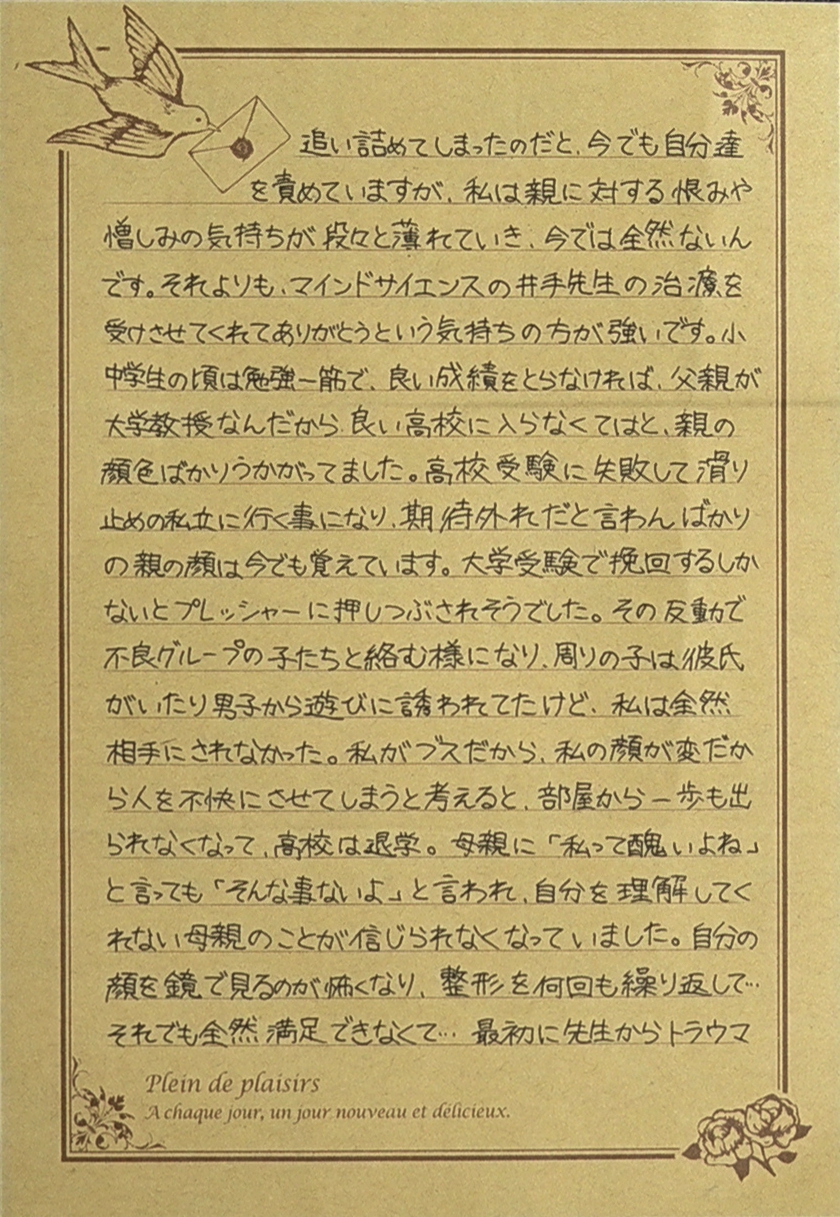 追い詰めてしまったのだと、今でも自分達
を責めていますが、私は親に対する恨みや
憎しみの気持ちが段々と薄れていき、今では全然ないん
です。それよりも、マインドサイエンスの井手先生の治療を
受けさせてくれてありがとうという気持ちの方が強いです。小
中学生の頃は勉強一筋で、良い成績をとらなければ、父親が
大学教授なんだから良い高校に入らなくてはと、親の
顔色ばかりうかがってました。高校受験に失敗して滑り
止めの私立に行く事になり、期待外れだと言わんばかり
の親の顔は今でも覚えています。大学受験で挽回するしか
ないとプレッシャーに押しつぶされそうでした。その反動で
不良グループの子たちと絡む様になり、周りの子は彼氏
がいたり男子から遊びに誘われてたけど、私は全然
相手にされなかった。私がブスだから、私の顔が変だか
ら人を不快にさせてしまうと考えると、部屋から一歩も出
られなくなって、高校は退学。母親に「私って醜いよね」
と言っても「そんな事ないよ」と言われ、自分を理解してく
れない母親のことが信じられなくなっていました。自分の
顔を鏡で見るのが怖くなり、整形を何回も繰り返して…
それでも全然満足できなくて… 最初に先生からトラウマ
Plein de plaisirs
A chaque jour, un jour nouveau et délicieux.